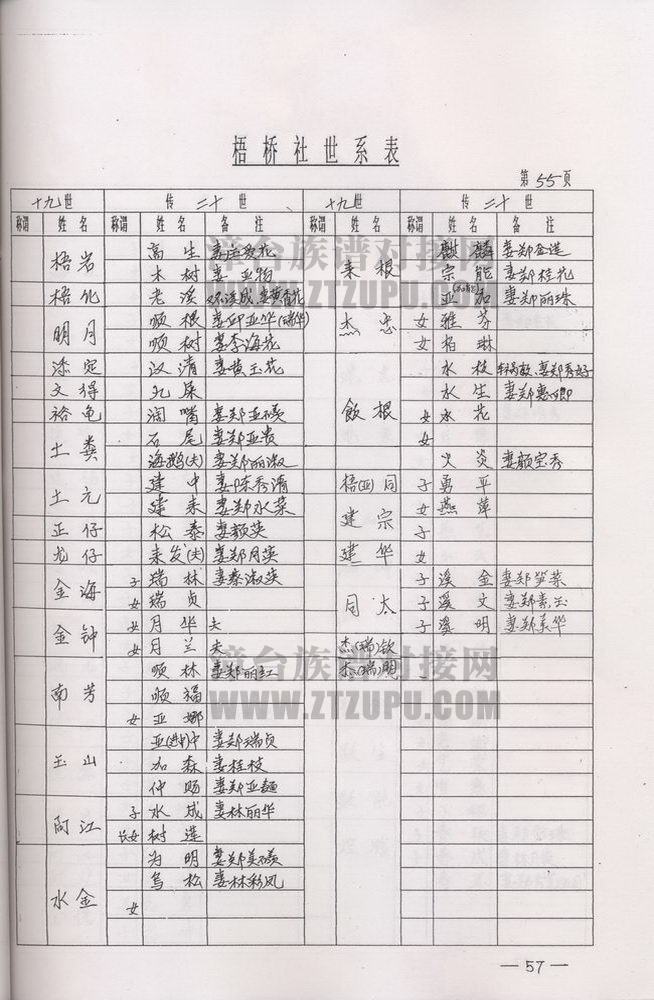 梧桥社世系表
第55页
十九世 传二十世 十九世 传二十世
称谓 姓名 称谓 姓名 备注 称谓 姓名 称谓 姓名 备注
梧岩 高生
木树
梧化 老溪
明月 顺根
顺树 妻李海花
添定 汉清 妻黄玉花
文得
裕龟 阔嘴
土粪 石尾 妻郑亚贵
海鹅(夫) 妻郑丽淑
土元 建中 妻陈秀清
建来 妻郑水菜
正仔 松泰 妻颜英
龙仔 来发(夫) 妻郑月英
金海 子 瑞林 妻秦淑英
女 瑞贞
金钟 女 月华 夫
女 月兰 夫
南芳 顺林 妻郑丽红
顺福
女 亚娜
玉山 妻郑瑞贞
加森 妻桂枝
仲赐
阿江 子 水成 妻林丽华
长女 树莲
水金 为明 妻郑美硕
乌松 妻林彩凤
女
来根 麒麟 妻郑金莲
宗能 妻郑桂花
亚加 妻郑丽珠
杰忠 女 雅芬
女 柏琳
飯根 水枝
水生 妻郑惠卿
女 水花
女
火炎 妻颜宝秀
梧(亚)同 子 勇平
建宗 女 燕萍
子
建华 女
同太 子 溪金 妻郑笋菜
子 溪文 妻郑素玉
子 溪明 妻郑美华
杰(瑞)钦
杰(瑞)明
漳台族谱对接网
WWW.ZTZUPU.COM
漳台族谱对接网
WWW.ZTZUPU.COM
—57—